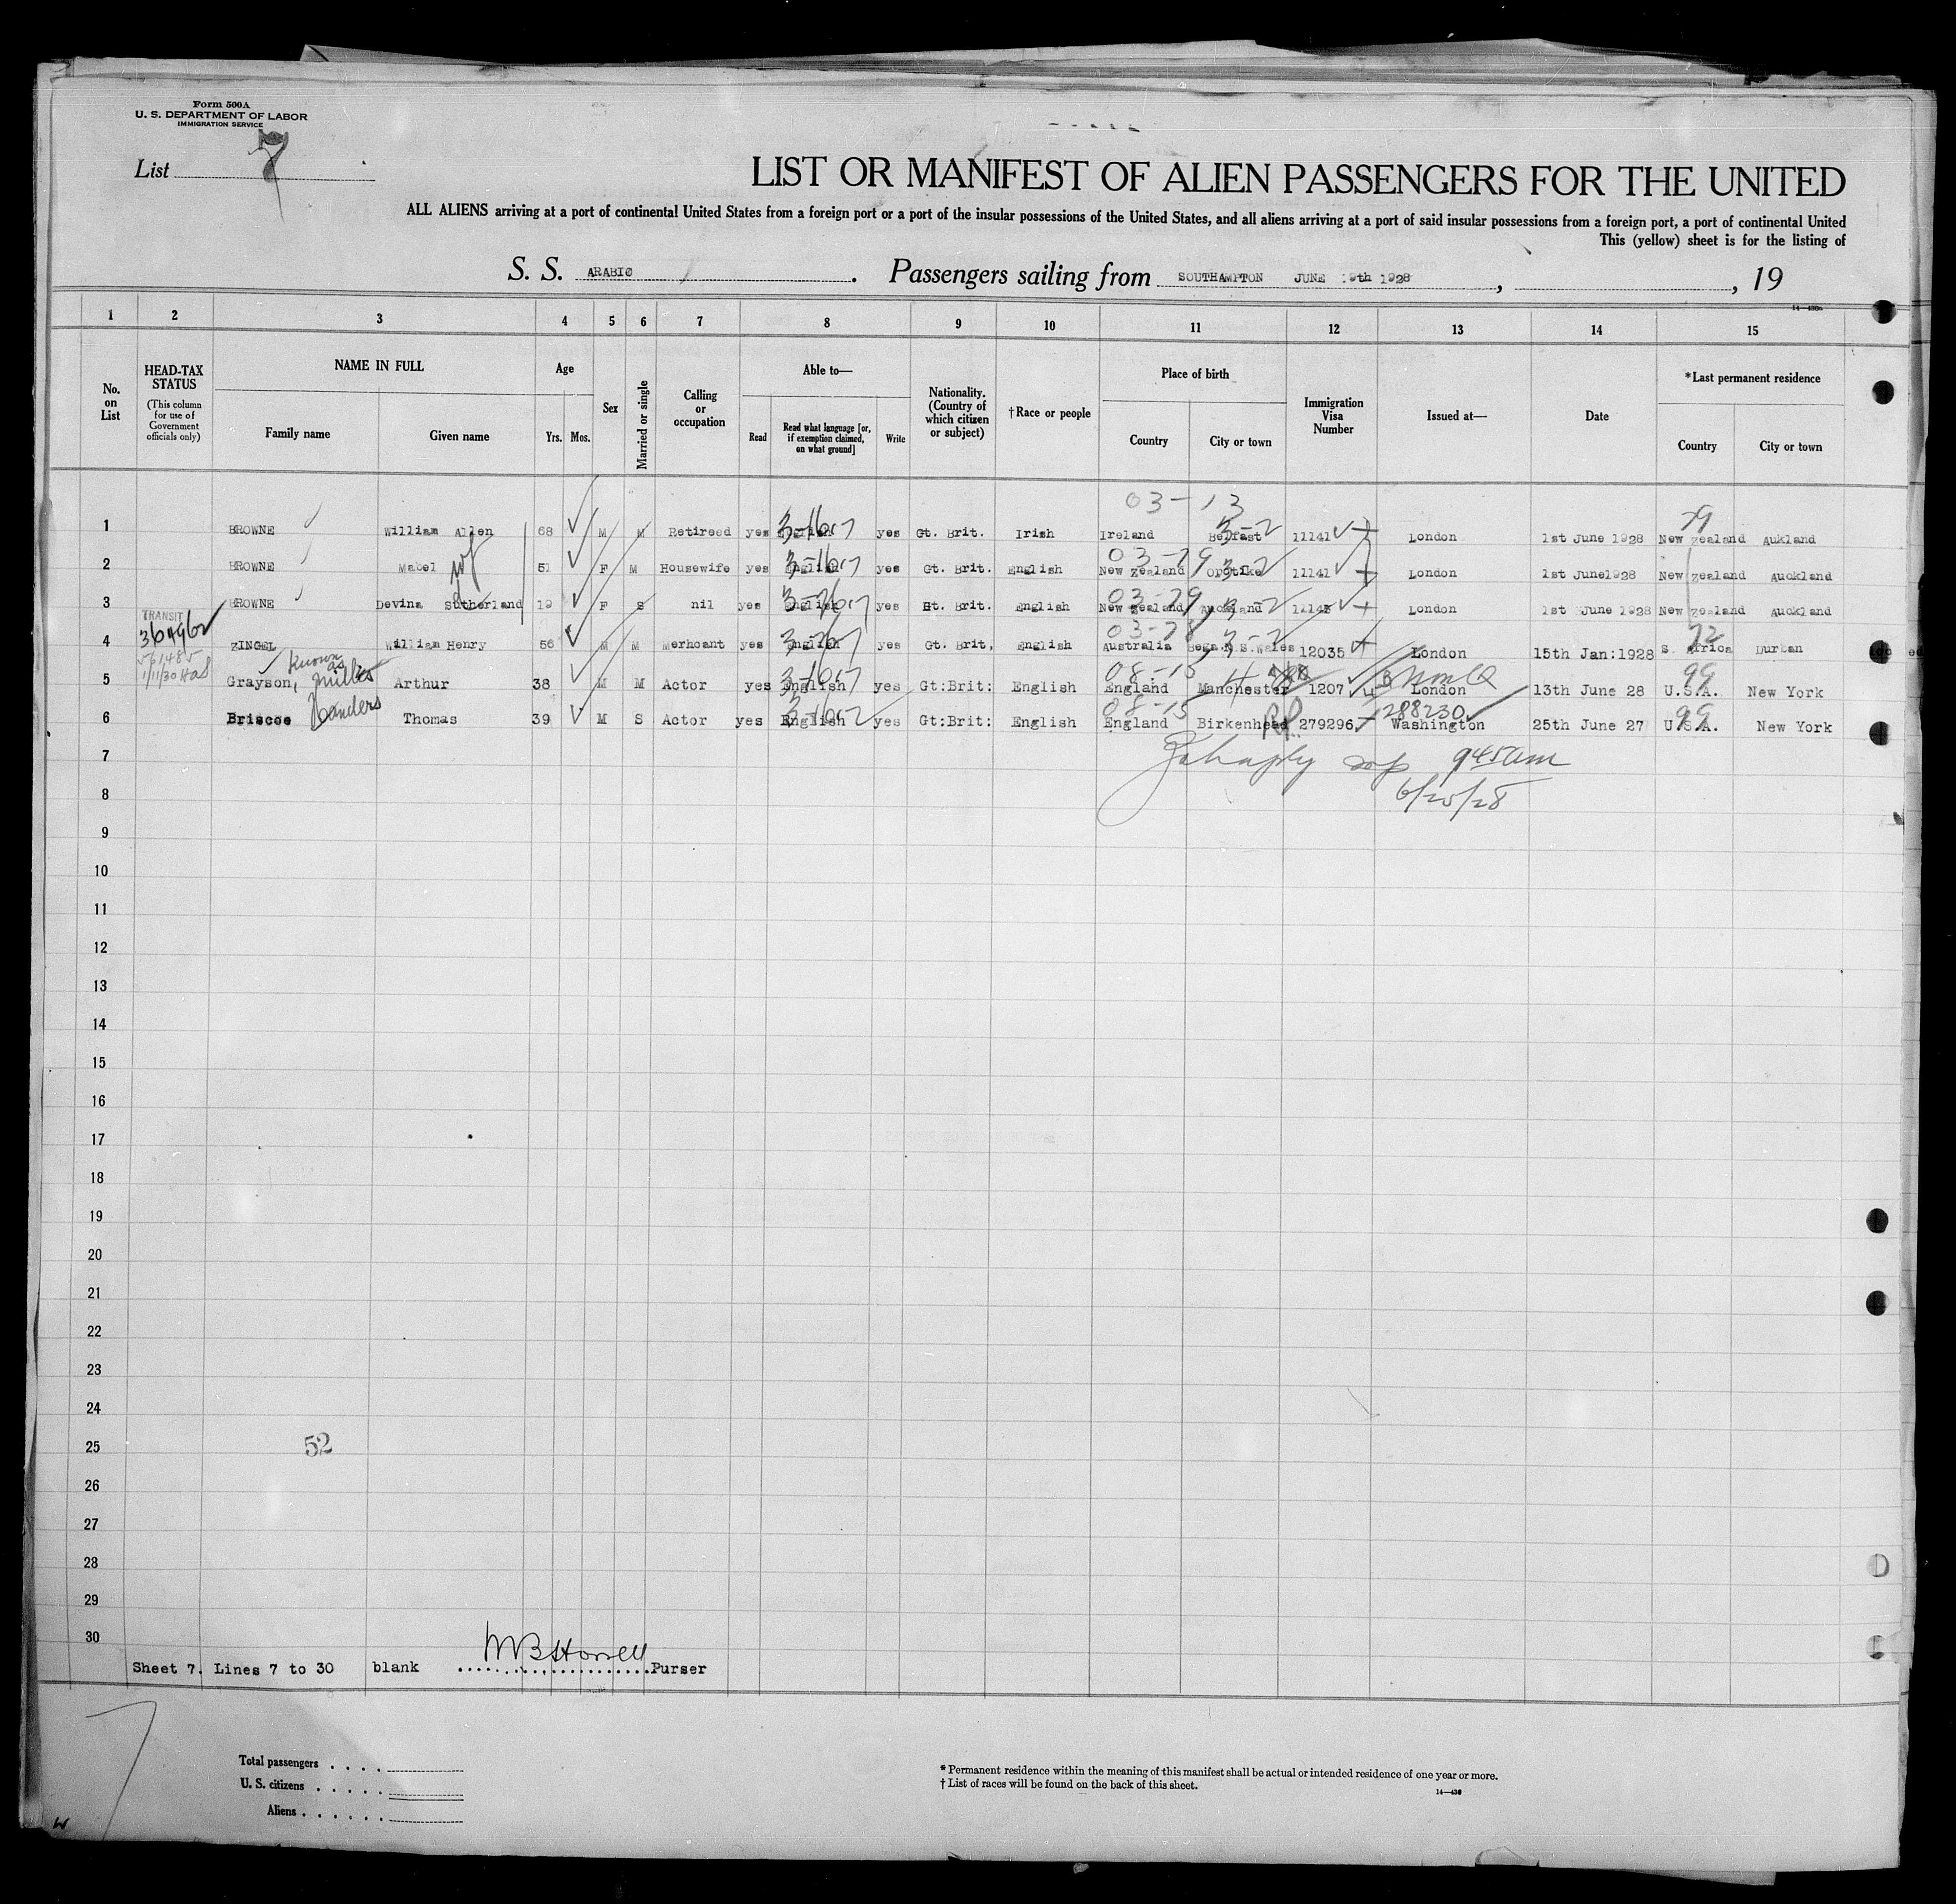 Form 500A
U. S. DEPARTMENT OF LABOR
IMMIGRATION SERVICE
List 7
LIST OR MANIFEST OF ALIEN PASSENGERS FOR THE UNITED
ALL ALIENS arriving at a port of continental United States from a foreign port or a port of the insular possessions of the United States, and all aliens arriving at a port of said insular possessions from a foreign port, a port of continental United
This (yellow) sheet is for the listing of
S. S. ARABIC. Passengers sailing from SOUTHAMPTON JUNE 19th 1928, , 19
14—430a
1 2 3 4 5 6 7 8 9 10 11 12 13 14 15
No. on List
HEAD-TAX STATUS
(This column for use of Government officials only)
NAME IN FULL
Family name
Given name
Age
Yrs. Mos.
Sex
Married or single
Calling or occupation
Able to—
Read
Read what language [or, if exemption claimed, on what ground]
Write
Nationality. (Country of which citizen or subject)
†Race or people
Place of birth
Country
City or town
Immigration Visa Number
Issued at—
Date
*Last permanent residence
Country
City or town
03-13 79
1 BROWNE William Allen 68 M M Retireed yes English yes Gt. Brit. Irish Ireland Belfast 11141 London 1st June 1928 New Zealand Aukland
03-79
2 BROWNE Mabel wf 51 F M Housewife yes English yes Gt. Brit. English New Zealand 11141 London 1st June1928 New Zealand Auckland
03-79
3 BROWNE Devina Sutherland 19 F S nil yes English yes Gt. Brit. English New Zealand Auckland London 1st June 1928 New Zealand Auckland
TRANSIT
03-78 72
4 ZINGEL William Henry 56 M M Merhcant yes English yes Gt. Brit, English Australia Bega.N.S.Wales 12035 London 15th Jan:1928 S. Africa Durban
561485
1/11/30
known as
08-15 99
5 Grayson, Arthur 38 M M Actor yes English yes Gt:Brit: English England Manchester 1207 London 13th June 28 U.S.A. New York
08-15 288230 99
6 Briscoe Thomas 39 M S Actor yes English yes Gt:Brit: English England Birkenhead 279296 Washington 25th June 27 U.S.A. New York
7 945am
8 6/25/28
9
10
11
12
13
14
15
16
17
18
19
20
21
22
23
24
25 52
26
27
28
29
30
Sheet 7. Lines 7 to 30 blank Purser
7
Total passengers
U. S. citizens
Aliens
* Permanent residence within the meaning of this manifest shall be actual or intended residence of one year or more.
† List of races will be found on the back of this sheet.
14—430